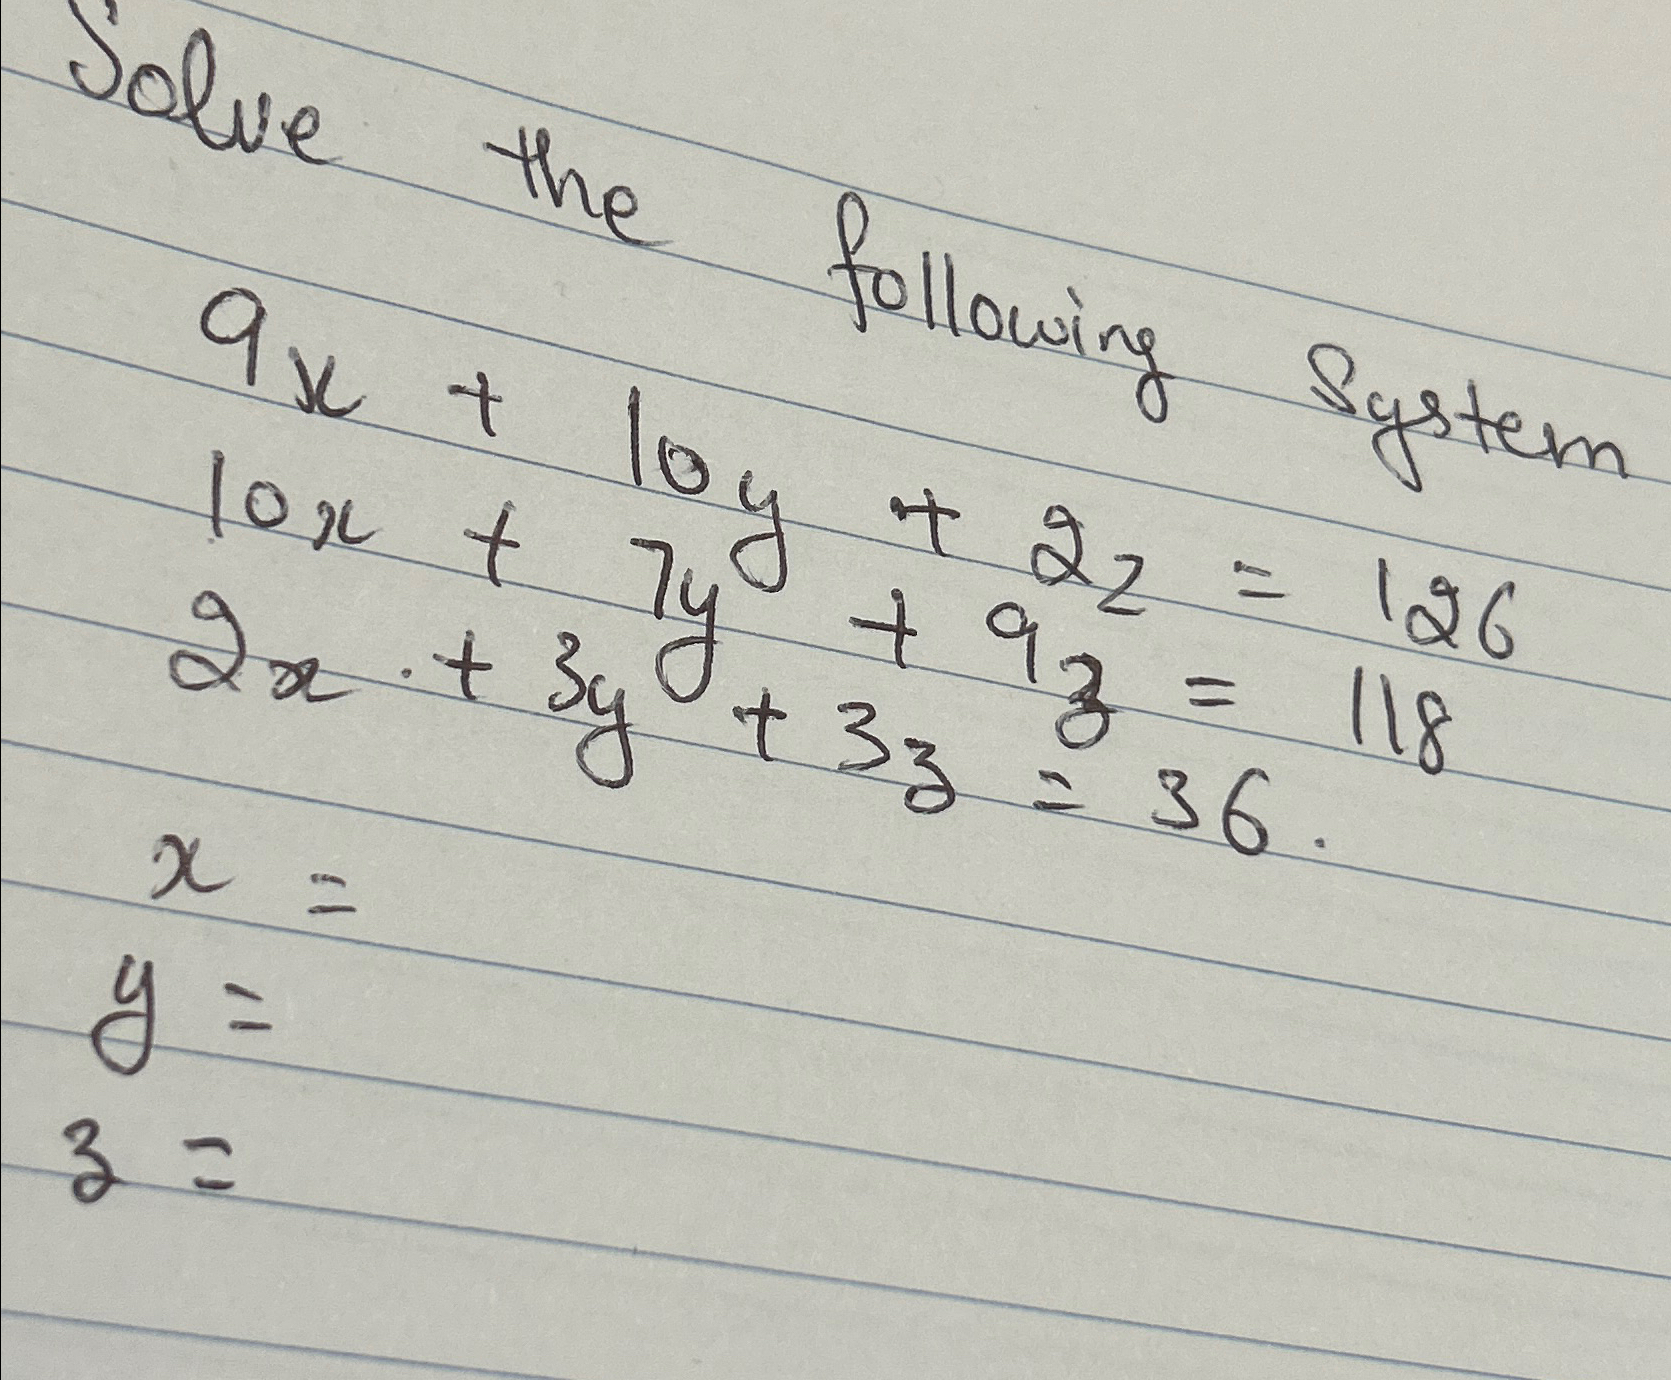 Solve the following System
9x + 10y + 2z = 126
10x + 7y + 9z = 118
2x + 3y + 3z = 36.
x =
y =
z =